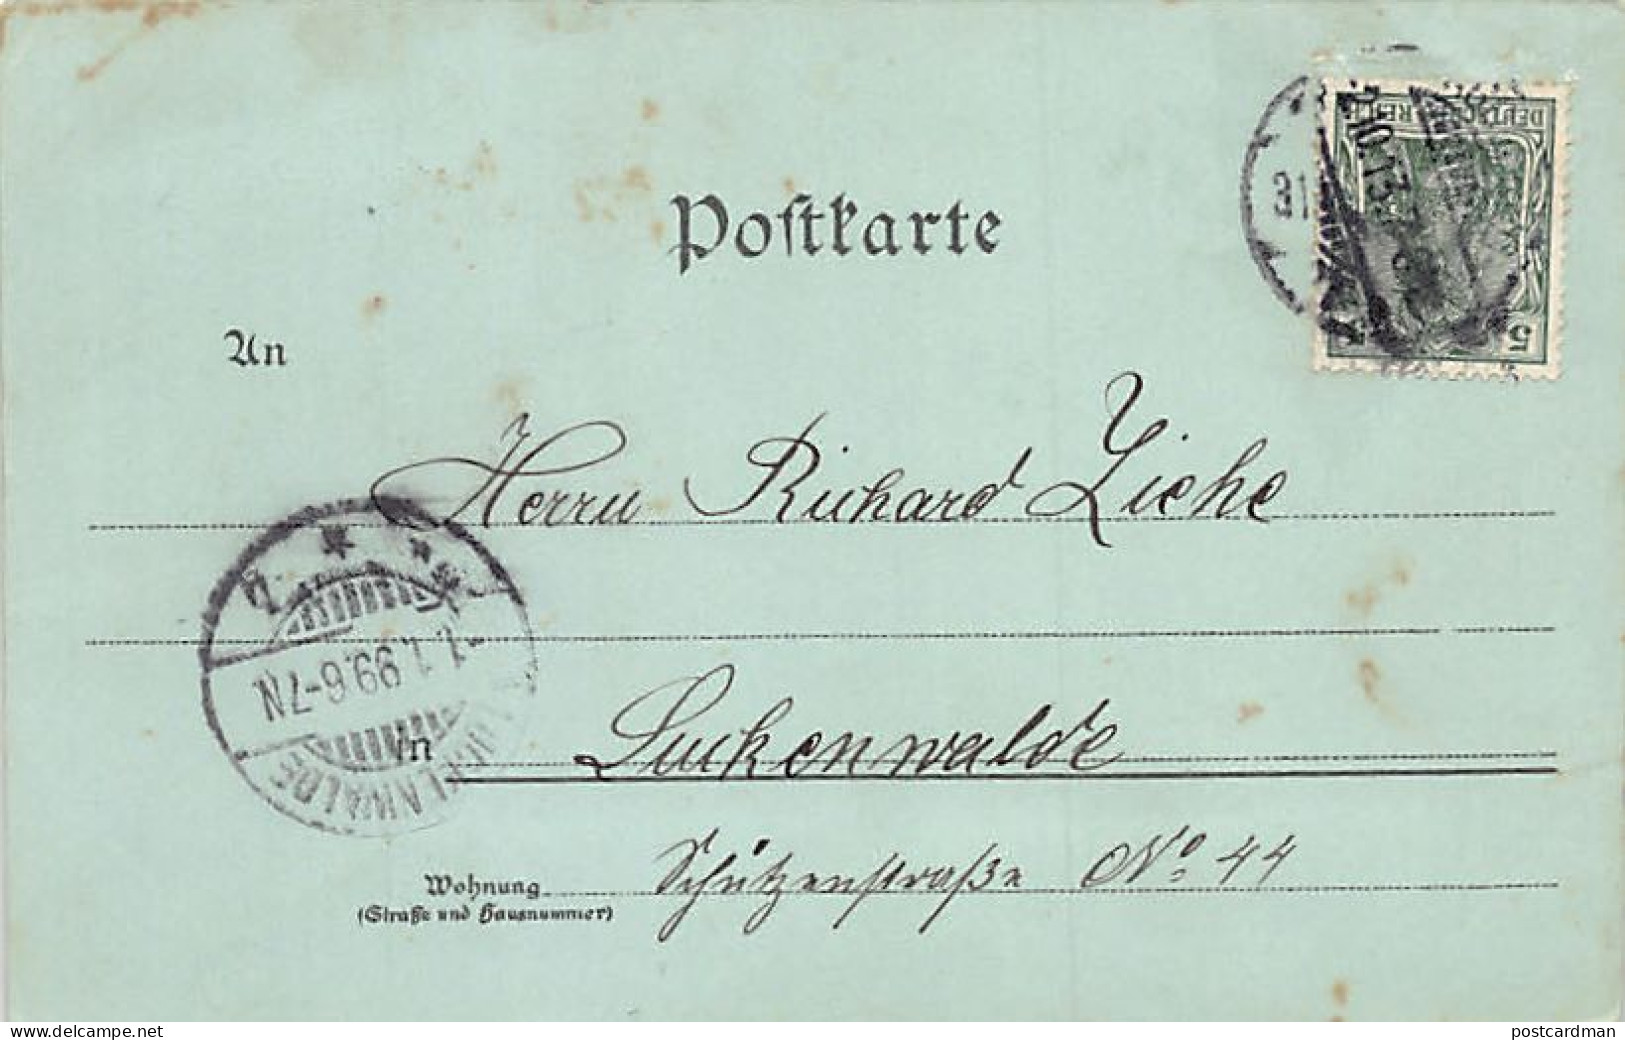 Postkarte
DEUTSCHES REICH
31
5
An
Herrn Richard Ziehe
1.1.99.6-7N.
LUCKENWALDE
in Luckenwalde
Wohnung Schützenstraße No 44
(Straße und Hausnummer)
www.delcampe.net
postcardman